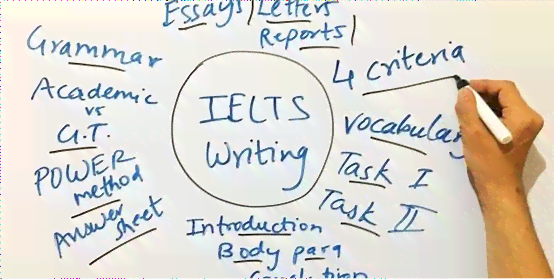 Essays/Letters
Reports/
Grammar
Academic
vs
G.T.
POWER
method
Answer
sheet
IELTS
Writing
4 criteria
Vocabulary
Task I
Task II
Introduction
Body para